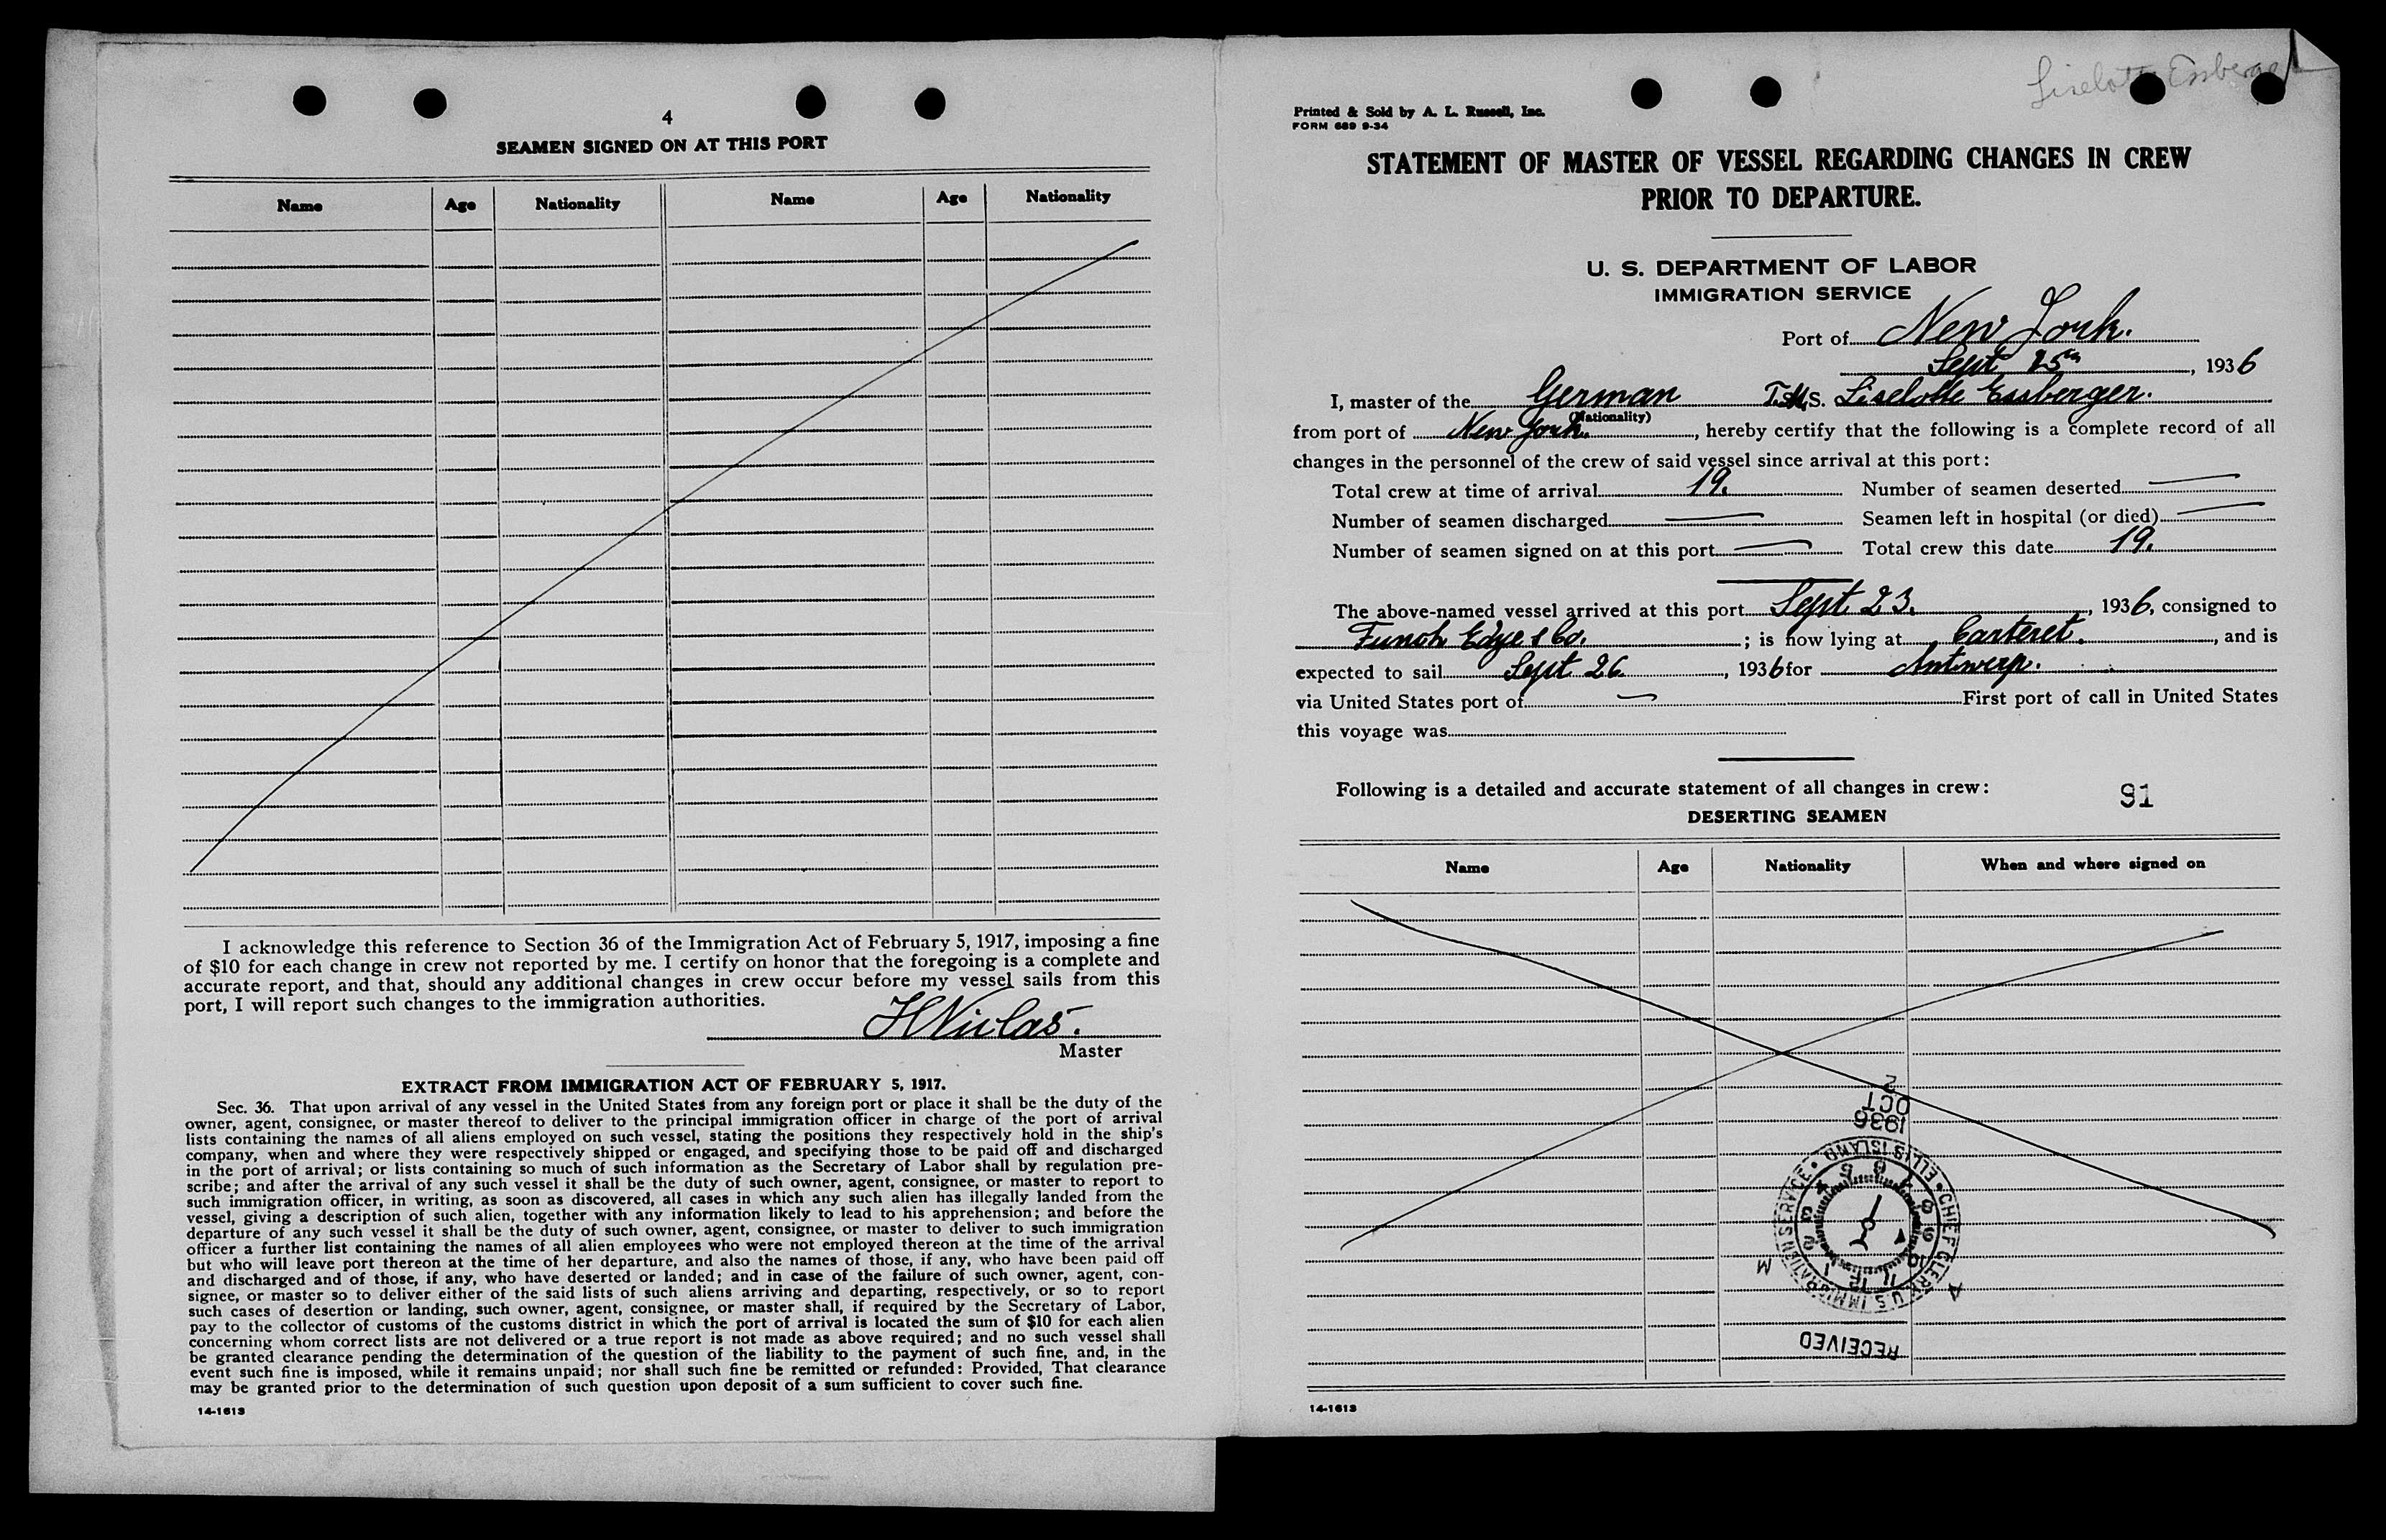 4
SEAMEN SIGNED ON AT THIS PORT
Name Age Nationality Name Age Nationality
I acknowledge this reference to Section 36 of the Immigration Act of February 5, 1917, imposing a fine
of $10 for each change in crew not reported by me. I certify on honor that the foregoing is a complete and
accurate report, and that, should any additional changes in crew occur before my vessel sails from this
port, I will report such changes to the immigration authorities.
HNiclas.
Master
EXTRACT FROM IMMIGRATION ACT OF FEBRUARY 5, 1917.
Sec. 36. That upon arrival of any vessel in the United States from any foreign port or place it shall be the duty of the
owner, agent, consignee, or master thereof to deliver to the principal immigration officer in charge of the port of arrival
lists containing the names of all aliens employed on such vessel, stating the positions they respectively hold in the ship's
company, when and where they were respectively shipped or engaged, and specifying those to be paid off and discharged
in the port of arrival; or lists containing so much of such information as the Secretary of Labor shall by regulation pre-
scribe; and after the arrival of any such vessel it shall be the duty of such owner, agent, consignee, or master to report to
such immigration officer, in writing, as soon as discovered, all cases in which any such alien has illegally landed from the
vessel, giving a description of such alien, together with any information likely to lead to his apprehension; and before the
departure of any such vessel it shall be the duty of such owner, agent, consignee, or master to deliver to such immigration
officer a further list containing the names of all alien employees who were not employed thereon at the time of the arrival
but who will leave port thereon at the time of her departure, and also the names of those, if any, who have been paid off
and discharged and of those, if any, who have deserted or landed; and in case of the failure of such owner, agent, con-
signee, or master so to deliver either of the said lists of such aliens arriving and departing, respectively, or so to report
such cases of desertion or landing, such owner, agent, consignee, or master shall, if required by the Secretary of Labor,
pay to the collector of customs of the customs district in which the port of arrival is located the sum of $10 for each alien
concerning whom correct lists are not delivered or a true report is not made as above required; and no such vessel shall
be granted clearance pending the determination of the question of the liability to the payment of such fine, and, in the
event such fine is imposed, while it remains unpaid; nor shall such fine be remitted or refunded: Provided, That clearance
may be granted prior to the determination of such question upon deposit of a sum sufficient to cover such fine.
14-1613
Liselotte Essberger
Printed & Sold by A. L. Russell, Inc.
FORM 689 9-34
STATEMENT OF MASTER OF VESSEL REGARDING CHANGES IN CREW
PRIOR TO DEPARTURE.
U. S. DEPARTMENT OF LABOR
IMMIGRATION SERVICE
Port of New York.
Sept 25th, 1936
I, master of the German S. Liselotte Essberger.
(Nationality)
from port of New York., hereby certify that the following is a complete record of all
changes in the personnel of the crew of said vessel since arrival at this port:
Total crew at time of arrival 19. Number of seamen deserted —
Number of seamen discharged — Seamen left in hospital (or died) —
Number of seamen signed on at this port — Total crew this date 19.
The above-named vessel arrived at this port Sept 23., 1936, consigned to
Funch Edye & Co.; is now lying at Carteret., and is
expected to sail Sept 26., 1936 for Antwerp.
via United States port of — First port of call in United States
this voyage was
Following is a detailed and accurate statement of all changes in crew: 91
DESERTING SEAMEN
Name Age Nationality When and where signed on
RECEIVED
CHIEF CLERK U.S. IMMIGRATION SERVICE • ELLIS ISLAND •
A M
1 2 3 4 5 6 7 8 9 10 11 12
1936
OCT
2
14-1613